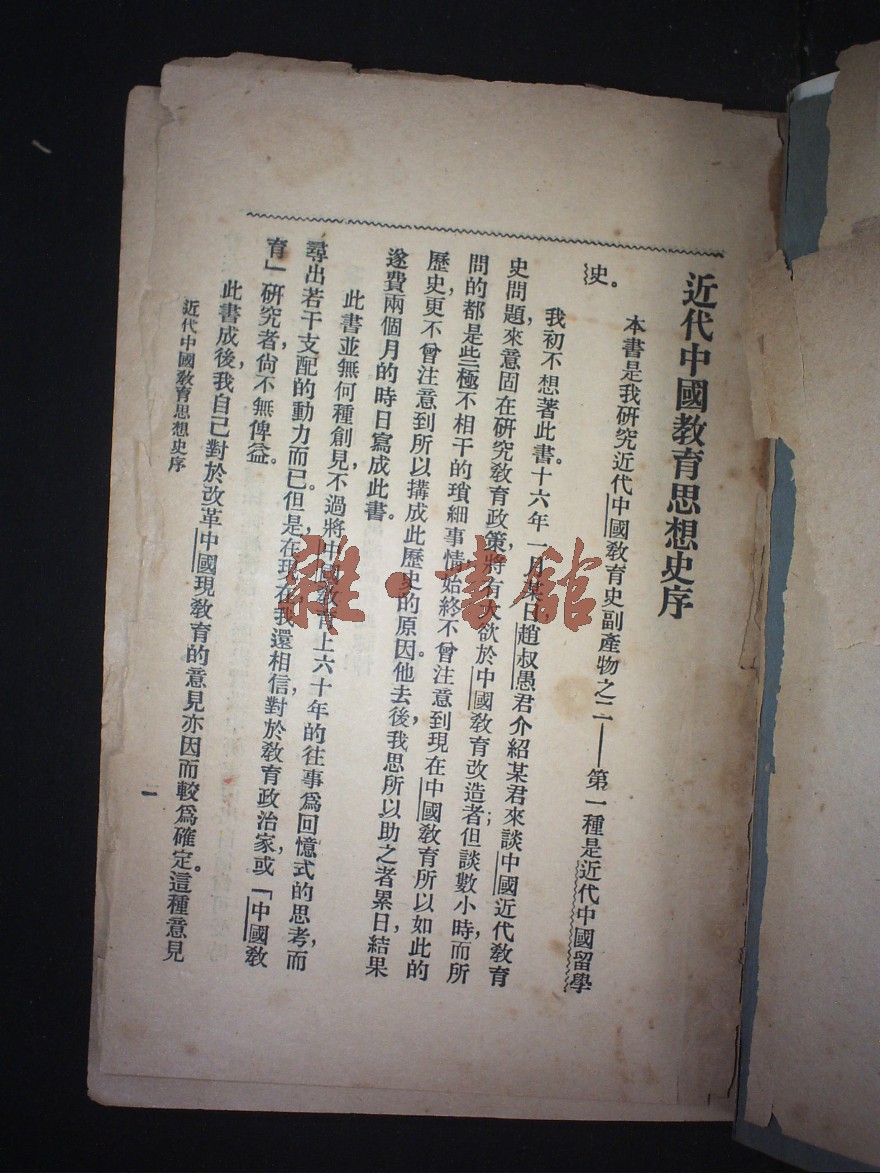 近代中國教育思想史序
本書是我研究近代中國敎育史副產物之二——第一種是近代中國留學
史。
我初不想著此書。十六年一月某日趙叔愚君介紹某君來談中國近代敎育
史問題，來意固在研究敎育政策，將有大欲於中國敎育改造者；但談數小時，而所
問的都是些極不相干的瑣細事情，始終不曾注意到現在中國敎育所以如此的
歷史，更不曾注意到所以搆成此歷史的原因。他去後，我思所以助之者累日，結果
遂費兩個月的時日寫成此書。
此書並無何種創見，不過將中國敎育上六十年的往事爲回憶式的思考，而
尋出若干支配的動力而已。但是在現在，我還相信對於敎育政治家，或「中國敎
育」研究者，尙不無俾益。
此書成後，我自己對於改革中國現敎育的意見亦因而較爲確定。這種意見
近代中國敎育思想史序
一
雜·書館